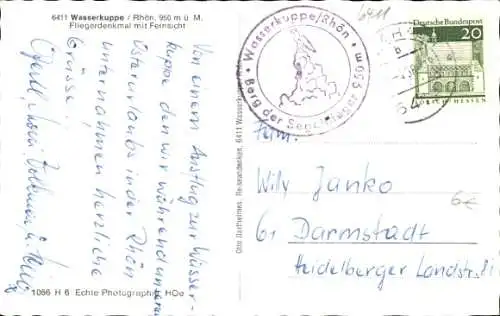 6411 Wasserkuppe / Rhön, 950 m ü. M.
Fliegerdenkmal mit Fernsicht
Von einem Ausflug zur Wasser-
kuppe den wir während unseres
Osterurlaubs in der Rhön
unternahmen herzliche
Grüsse
1066 H 6 Echte Photographie HOe
Otto Bartheimes, Reiseandenken, 6411 Wasserkuppe
Wasserkuppe/Rhön · 950m
Berg der Segelflieger
6411
Deutsche Bundespost
20
LORSCH/HESSEN
64
Fam.
Willy Janko
61 Darmstadt
Heidelberger Landstr. 81
6€